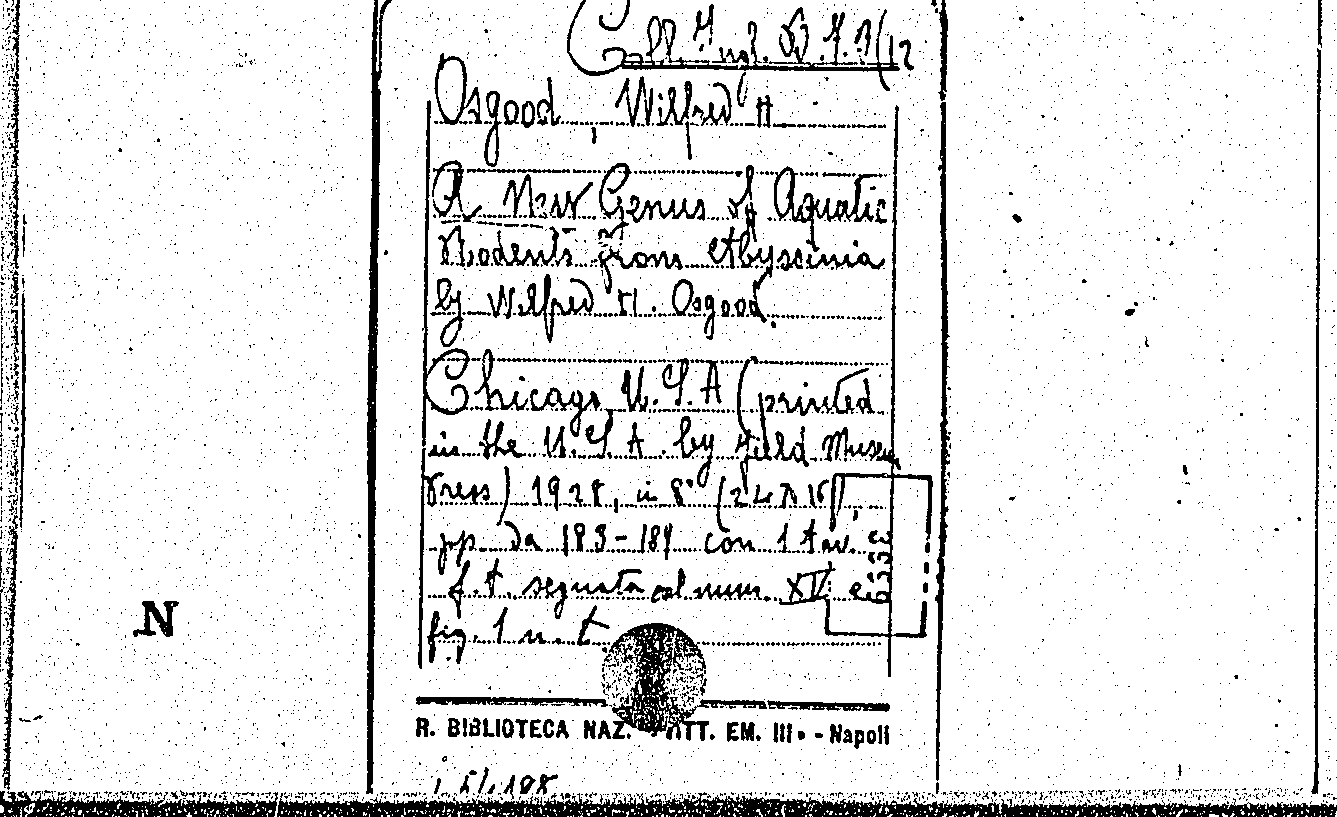 Coll. Ingl. B. F. 3/12
Osgood, Wilfred H.
A New Genus of Aquatic
Rodents from Abyssinia
by Wilfred H. Osgood.
Chicago, U.S.A (printed
in the U.S.A. by Field Museum
Press) 1928, in 8° (24 x 16),
pp. da 183-189 con 1 tav.
f.t. segnata col num. XV e
fig. 1 n. t.
R. BIBLIOTECA NAZ. VITT. EM. III - Napoli
N